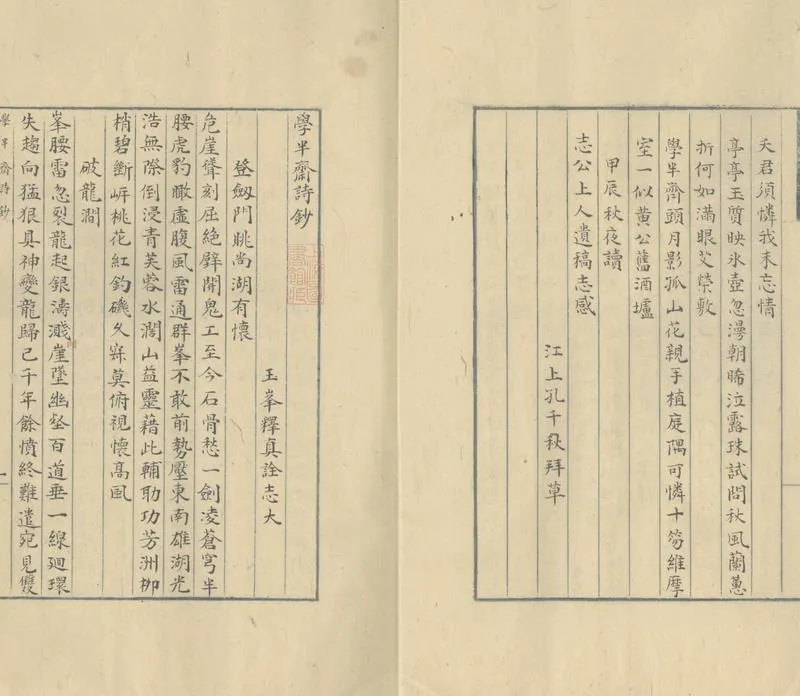 天君須憐我未忘情
亭亭玉質映氷壺忽漫朝晞泣露珠試問秋風蘭蕙
折何如滿眼艾榮敷
學半齋頭月影孤山花親手植庭隅可憐十笏維摩
室一似黄公舊酒壚
甲辰秋夜讀
志公上人遺稿志感
江上孔千秋拜草
學半齋詩鈔
玉峯釋真詮志大
登劔門眺尚湖有懷
危崖聳刻屈絶礕開鬼工至今石骨愁一劍凌蒼穹半
腰虎豹瞰虚腹風雷通群峯不敢前勢壓東南雄湖光
浩無際倒浸青芙蓉水濶山益靈藉此輔助功芳洲柳
梢碧斷岸桃花紅釣磯久寂莫俯視懷高風
破龍澗
峯腰雷忽裂龍起銀濤濺崖墜幽壑百道垂一線廻環
失趨向猛狠具神變龍歸已千年餘憤終難遣宛見雙
學半齋詩鈔
一